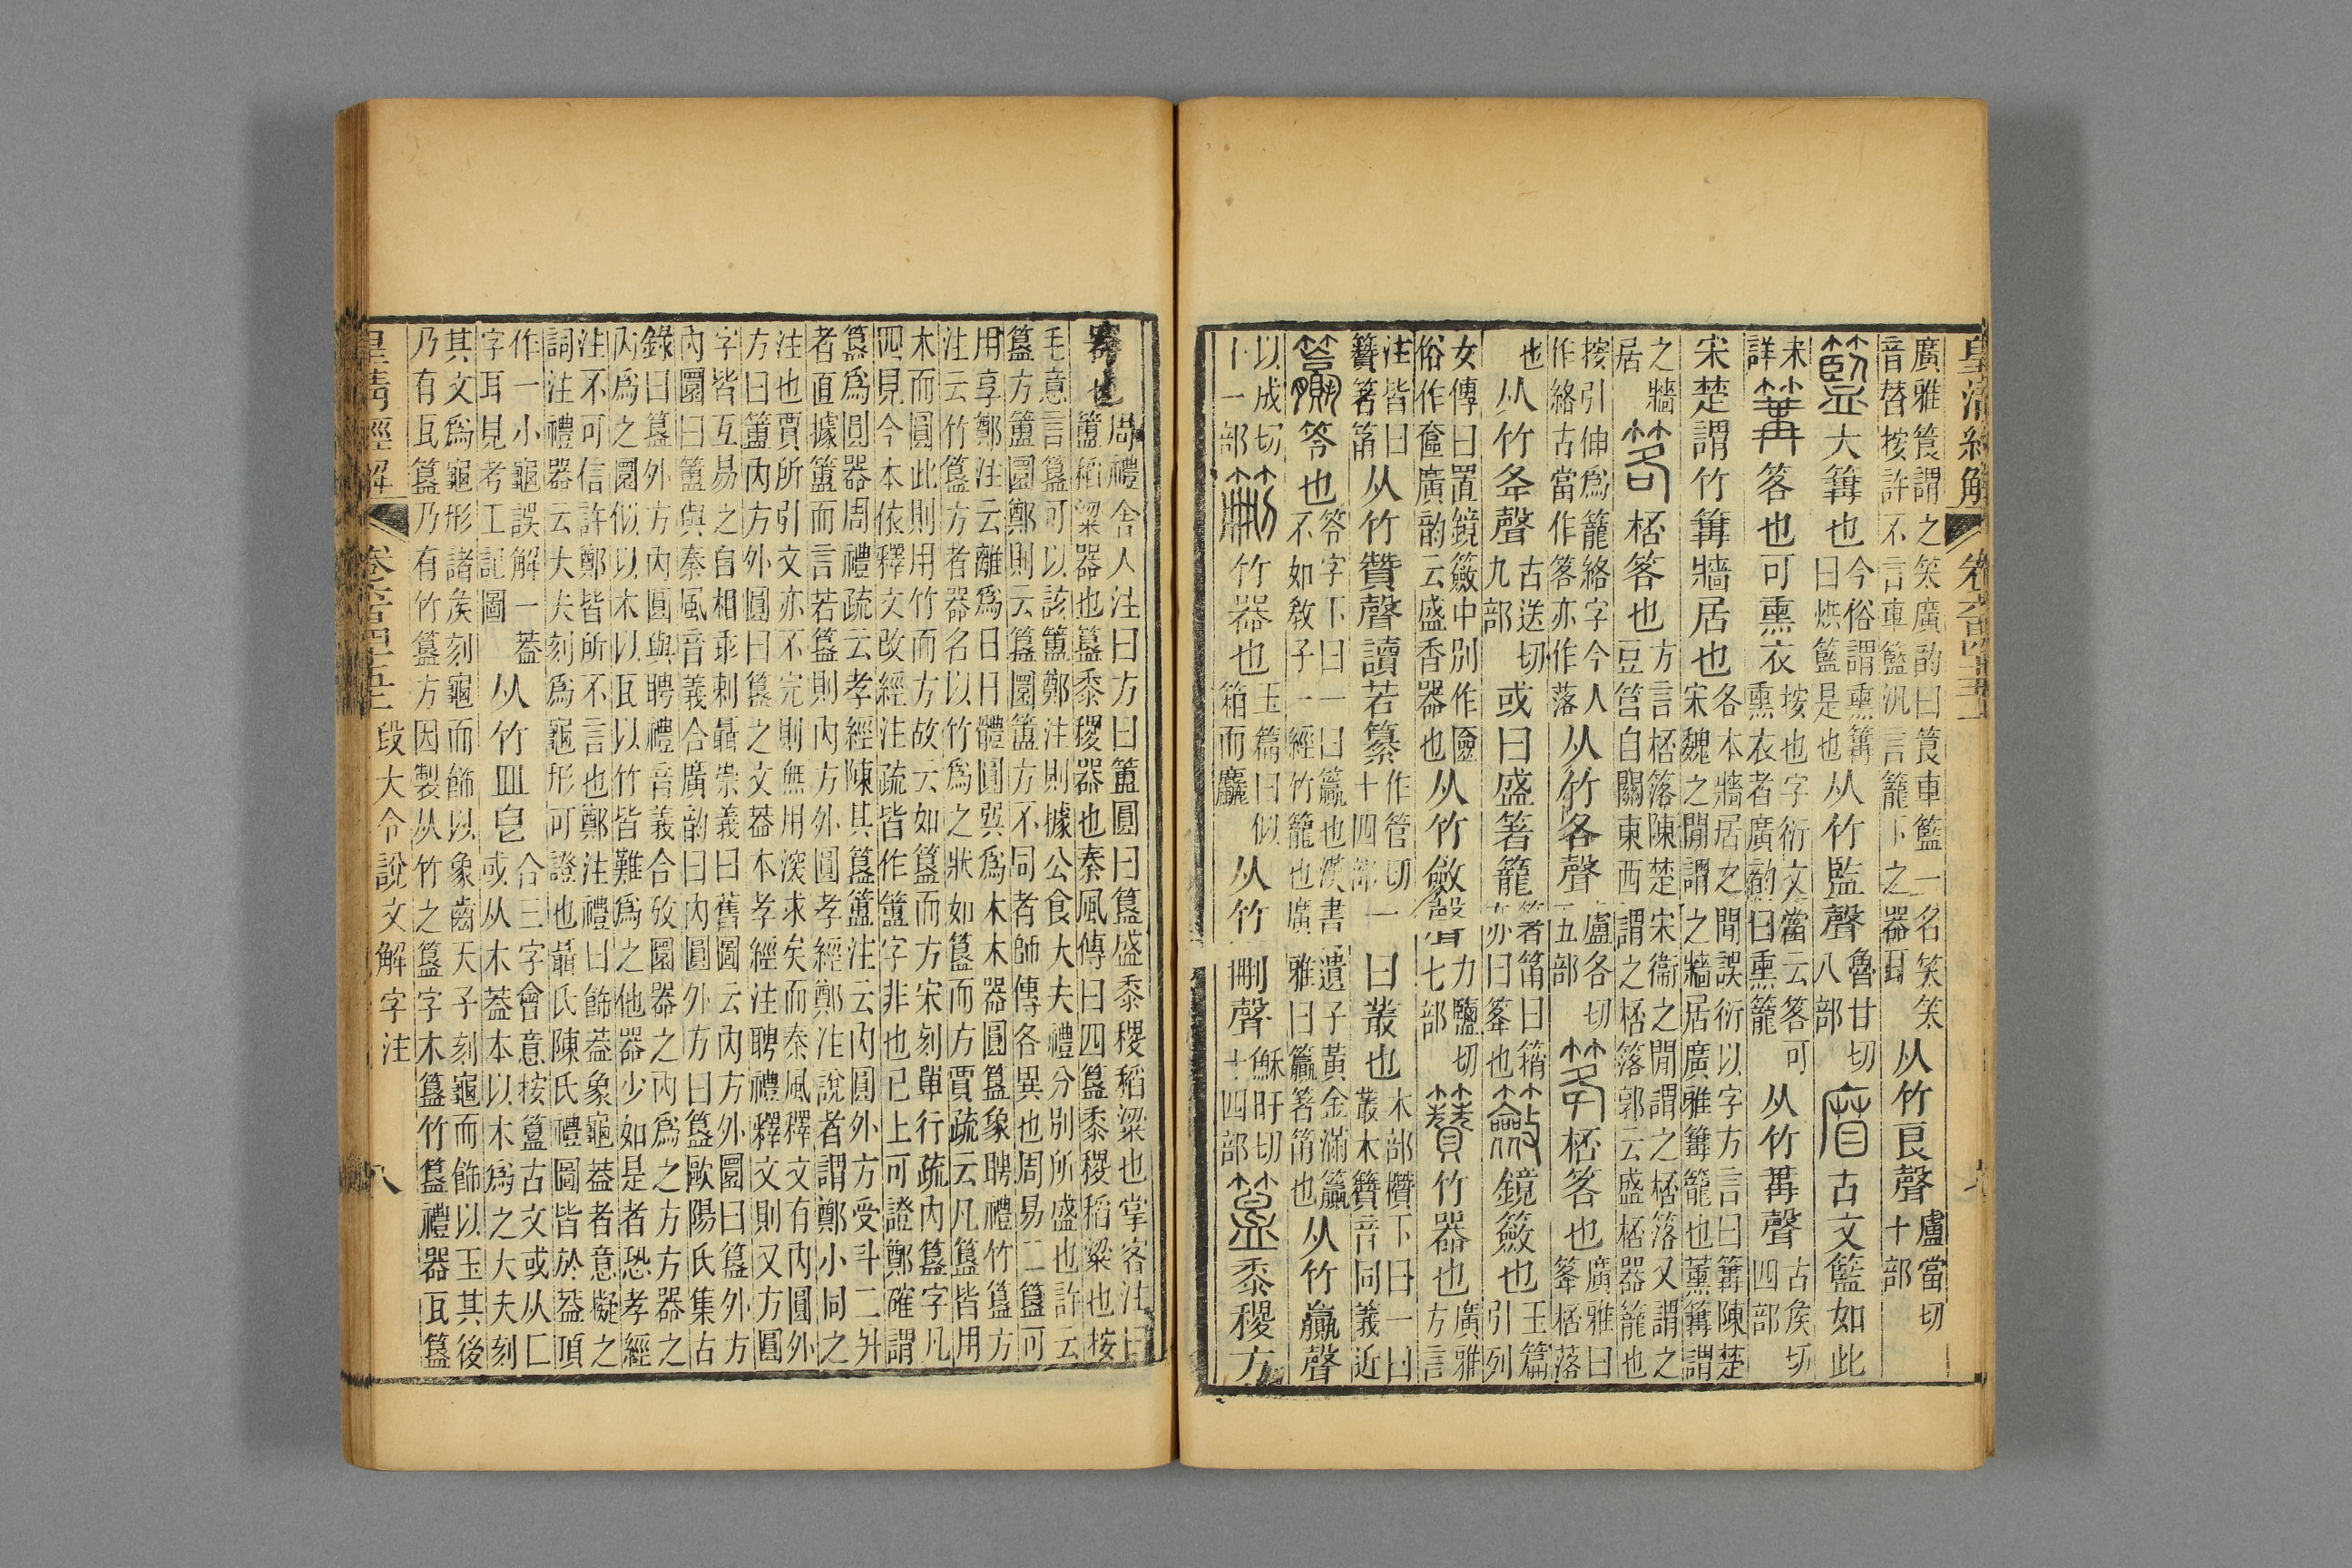 皇清經解
廣雅筤謂之笑廣韵曰筤車籃一名笑笑
音替按許不言車籃汎言籠下之器耳
从竹良聲
盧當切
十部
大篝也
今俗謂熏篝
曰烘籃是也
从竹監聲
魯甘切
八部
古文籃如此
未
詳
篝
笿也可熏衣
按也字衍文當云笿可
熏衣者廣韵曰熏籠
从竹冓聲
古矦切
四部
宋楚謂竹篝牆居也
各本牆居之閒誤衍以字方言曰篝陳楚
宋魏之閒謂之牆居廣雅篝籠也薰篝謂
之牆
居
笿
桮笿也
方言桮落陳楚宋衞之閒謂之桮落又謂之
豆筥自關東西謂之桮落郭云盛桮器籠也
按引伸爲籠絡字今人
作絡古當作笿亦作落
从竹各聲
盧各切
五部
桮笿也
廣雅曰
筡桮落
也
从竹夅聲
古送切
九部
或曰盛箸籠
箸筩曰䈰
亦曰筡也
籢
鏡籢也
玉篇
引列
女傳曰置鏡籢中別作匳
俗作奩廣韵云盛香器也
从竹斂聲
力鹽切
七部
竹器也
廣雅
方言
注皆曰
籫箸筩
从竹贊聲讀若纂
作管切
十四部
一曰叢也
木部欑下曰一曰
叢木籫音同義近
笭也
笭字下曰一曰籯也漢書遺子黃金滿籯
不如敎子一經竹籠也廣雅曰籯箸筩也
从竹贏聲
以成切
十一部
竹器也
玉篇曰似
箱而麤
从竹刪聲
穌旰切
十四部
黍稷方
器也
周禮舍人注曰方曰簠圓曰簋盛黍稷稻粱也掌客注曰
簠稻粱器也簋黍稷器也秦風傳曰四簋黍稷稻粱也按
毛意言簋可以該簠鄭注則據公食大夫禮分別所盛也許云
簋方簠圜鄭則云簋圜簠方不同者師傳各異也周易二簋可
用享鄭注云離爲日日體圓巽爲木木器圓簋象聘禮竹簋方
注云竹簋方者器名以竹爲之狀如簋而方賈疏云凡簋皆用
木而圓此則用竹而方故云如簋而方宋刻單行疏內簋字凡
四見今本依釋文改經注疏皆作簠字非也已上可證鄭確謂
簋爲圓器周禮疏云孝經陳其簋簠注云內圓外方受斗二升
者直據簠而言若簋則內方外圓孝經鄭注說者謂鄭小同之
注也賈所引文亦不完則無用深求矣而秦風釋文有內圓外
方曰簠內方外圓曰簋之文葢本孝經注聘禮釋文則又方圓
字皆互易之自相乖剌聶崇義曰舊圖云內方外圜曰簋外方
內圜曰簠與秦風音義合廣韵曰內圓外方曰簋歐陽氏集古
錄曰簋外方內圓與聘禮音義合攷圜器之內爲之方方器之
內爲之圜似以木以瓦以竹皆難爲之他器少如是者恐孝經
注不可信許鄭皆所不言也鄭注禮曰飾葢象龜葢者意擬之
詞注禮器云大夫刻爲龜形可證也聶氏陳氏禮圖皆於葢頂
作一小龜誤解一葢
字耳見考工記圖
从竹皿皀
合三字會意按簋古文或从匚
或从木葢本以木爲之大夫刻
其文爲龜形諸矦刻龜而飾以象齒天子刻龜而飾以玉其後
乃有瓦簋乃有竹簋方因製从竹之簋字木簋竹簋禮器瓦簋
皇清經解
段大令說文解字注
八